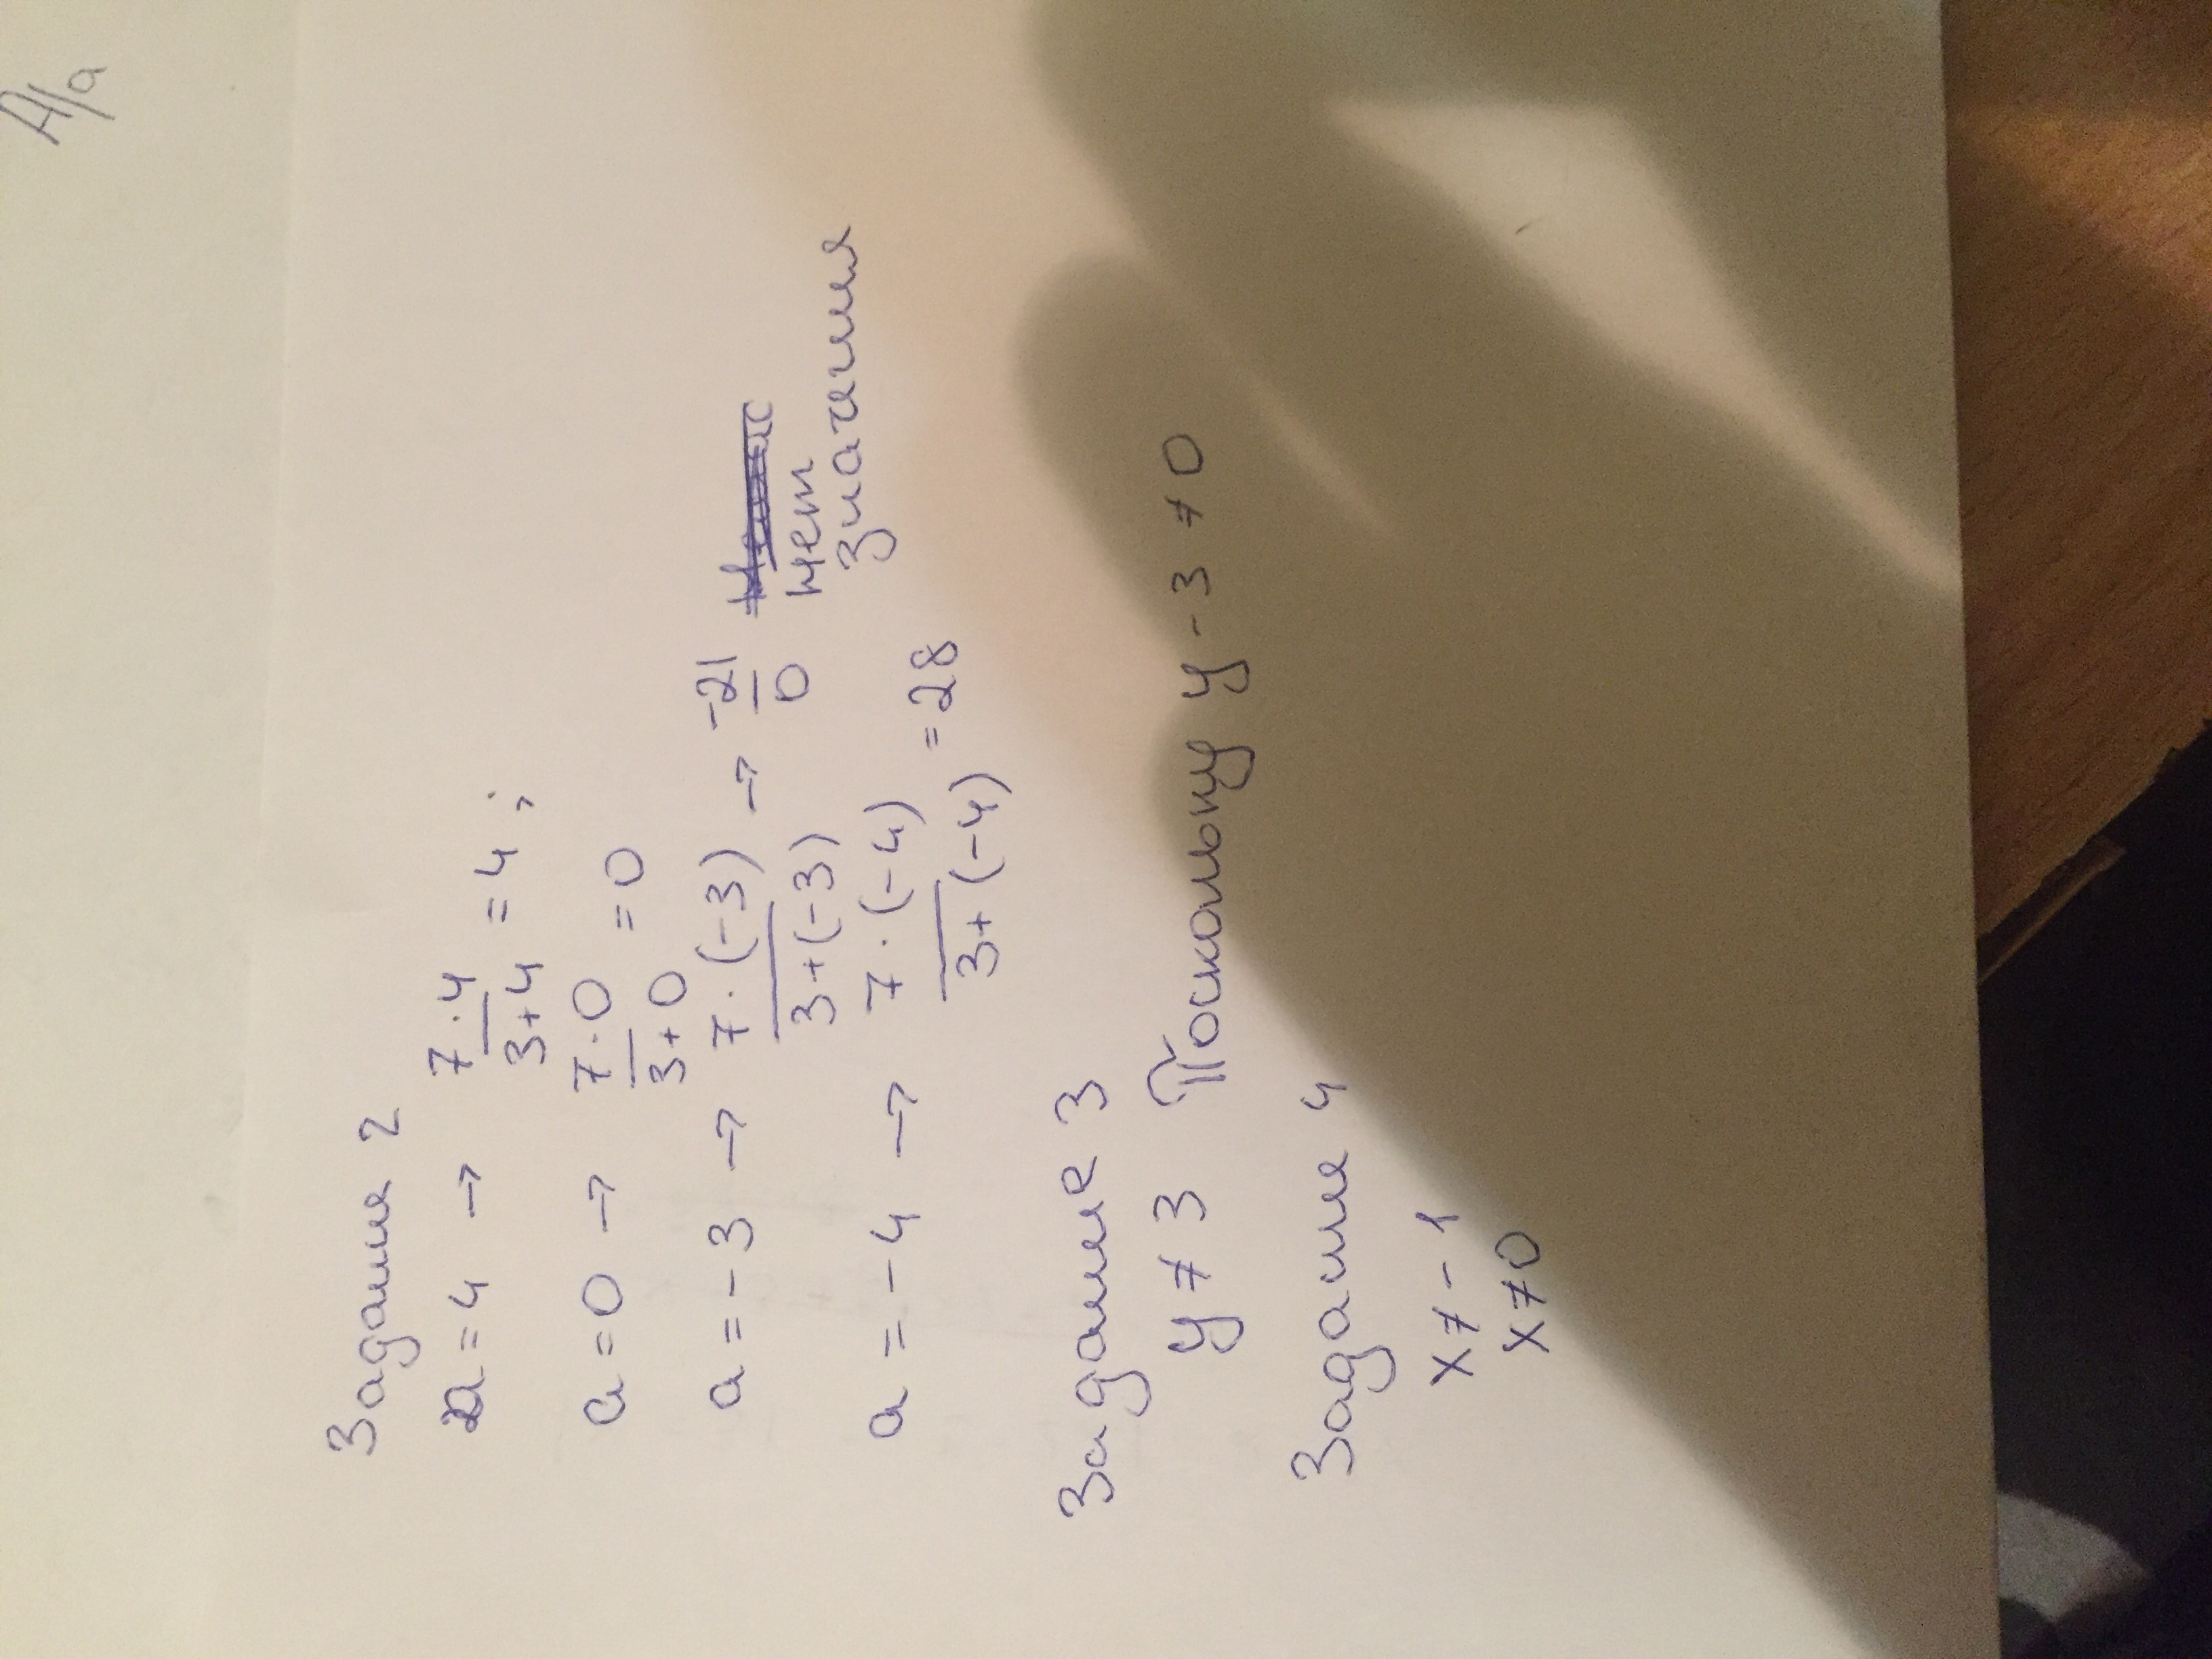 А/а
Задание 2
a = 4 → 7·4/3+4 = 4;
a = 0 → 7·0/3+0 = 0
a = -3 → 7·(-3)/3+(-3) → -21/0 нет
значения
a = -4 → 7·(-4)/3+(-4) = 28
Задание 3
y ≠ 3 Поскольку y - 3 ≠ 0
Задание 4
x ≠ -1
x ≠ 0